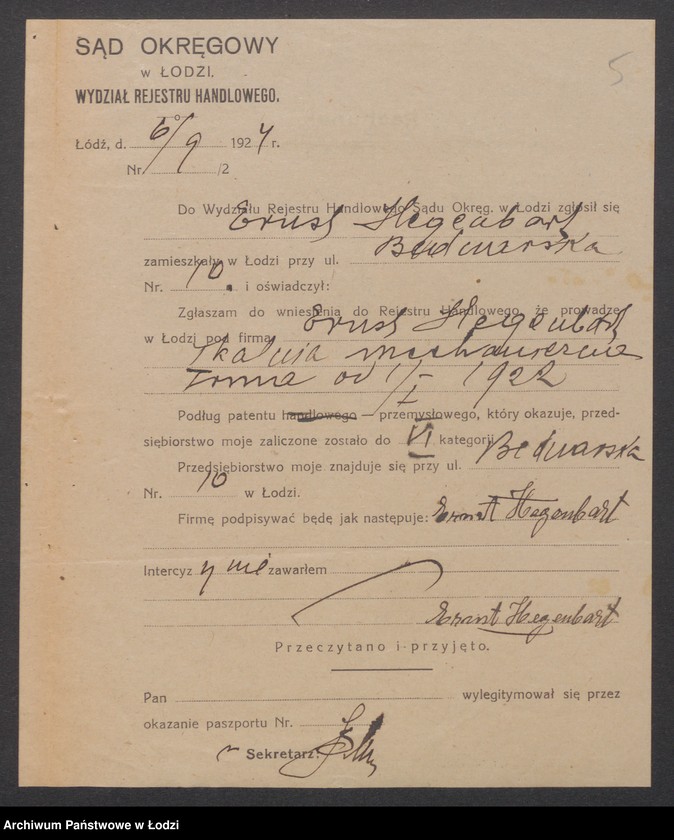 SĄD OKRĘGOWY
5
w ŁODZI,
WYDZIAŁ REJESTRU HANDLOWEGO.
Łódź, d. 6/9 1924 r.
Nr. /2
Do Wydziału Rejestru Handlowego Sądu Okręg. w Łodzi zgłosił się
Ernst Hegenbart
zamieszkały w Łodzi przy ul. Bednarska
Nr. 10. i oświadczył:
Zgłaszam do wniesienia do Rejestru Handlowego, że prowadzę
w Łodzi pod firmą Ernst Hegenbart
Tkalnia mechaniczna
od 1/I 1922
Podług patentu handlowego — przemysłowego, który okazuje, przed-
siębiorstwo moje zaliczone zostało do VI kategorji
Przedsiębiorstwo moje znajduje się przy ul. Bednarska
Nr. 10 w Łodzi.
Firmę podpisywać będę jak następuje: Ernst Hegenbart
Intercyzy nie zawarłem
Ernst Hegenbart
Przeczytano i przyjęto.
Pan wylegitymował się przez
okazanie paszportu Nr.
Sekretarz:
Archiwum Państwowe w Łodzi